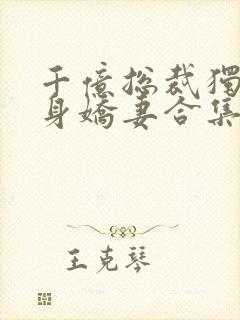 千億總裁獨
身嬌妻合集
王克琴